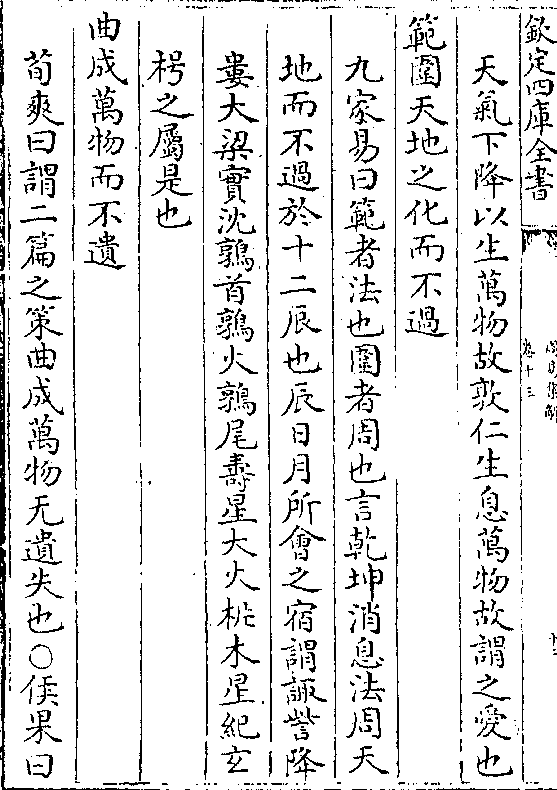 欽定四庫全書
周易集解
卷十三
天氣下降以生萬物故敦仁生息萬物故謂之愛也
範圍天地之化而不過
九家易曰範者法也圍者周也言乾坤消息法周天
地而不過於十二辰也辰日月所會之宿謂諏訾降
婁大梁實沈鶉首鶉火鶉尾壽星大火析木星紀玄
枵之屬是也
曲成萬物而不遺
荀爽曰謂二篇之策曲成萬物无遺失也○侯果曰